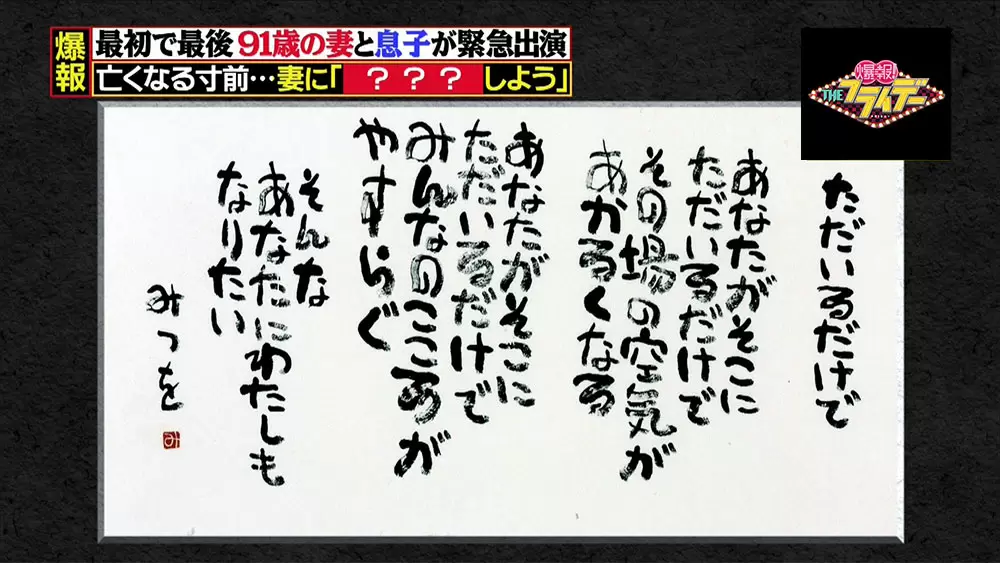 爆報
最初で最後91歳の妻と息子が緊急出演
亡くなる寸前…妻に「 ？？？ しよう」
爆報!
THEフライデー
ただいるだけで
あなたがそこに
ただいるだけで
その場の空気が
あかるくなる
あなたがそこに
ただいるだけで
みんなのこころが
やすらぐ
そんな
あなたにわたしも
なりたい
みつを
み